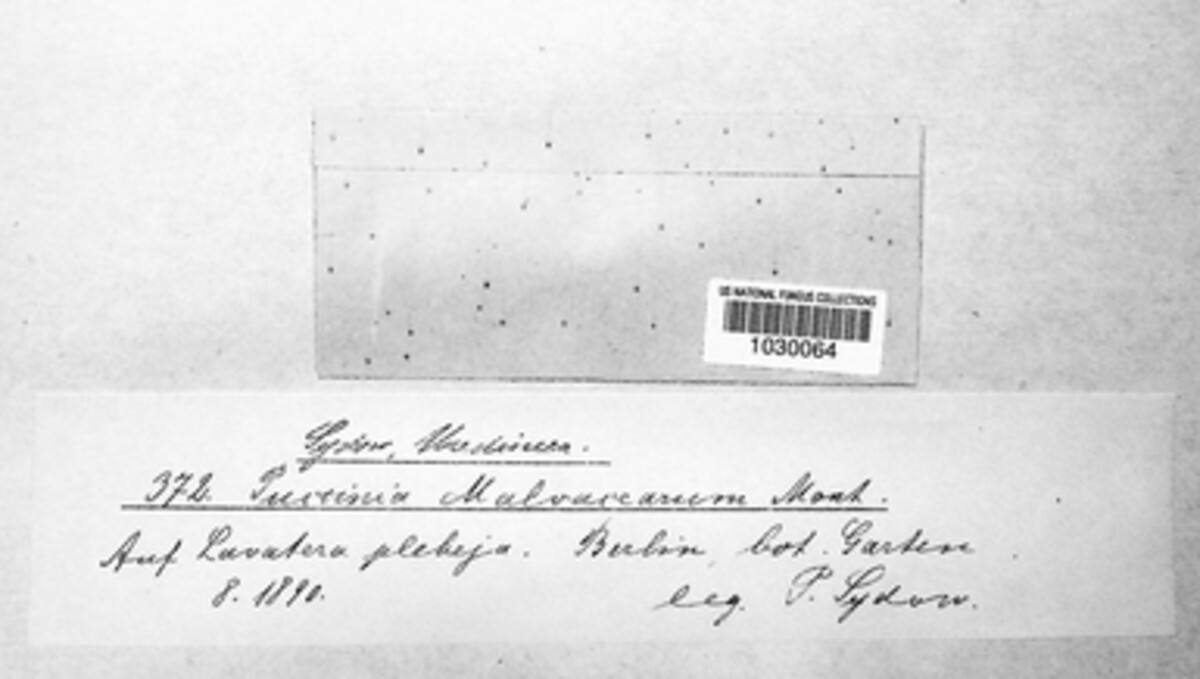 US NATIONAL FUNGUS COLLECTIONS
1030064
Sydow, Uredineen.
372. Puccinia Malvacearum Mont.
Auf Lavatera plebeja. Berlin, bot. Garten
8. 1890. leg. P. Sydow.